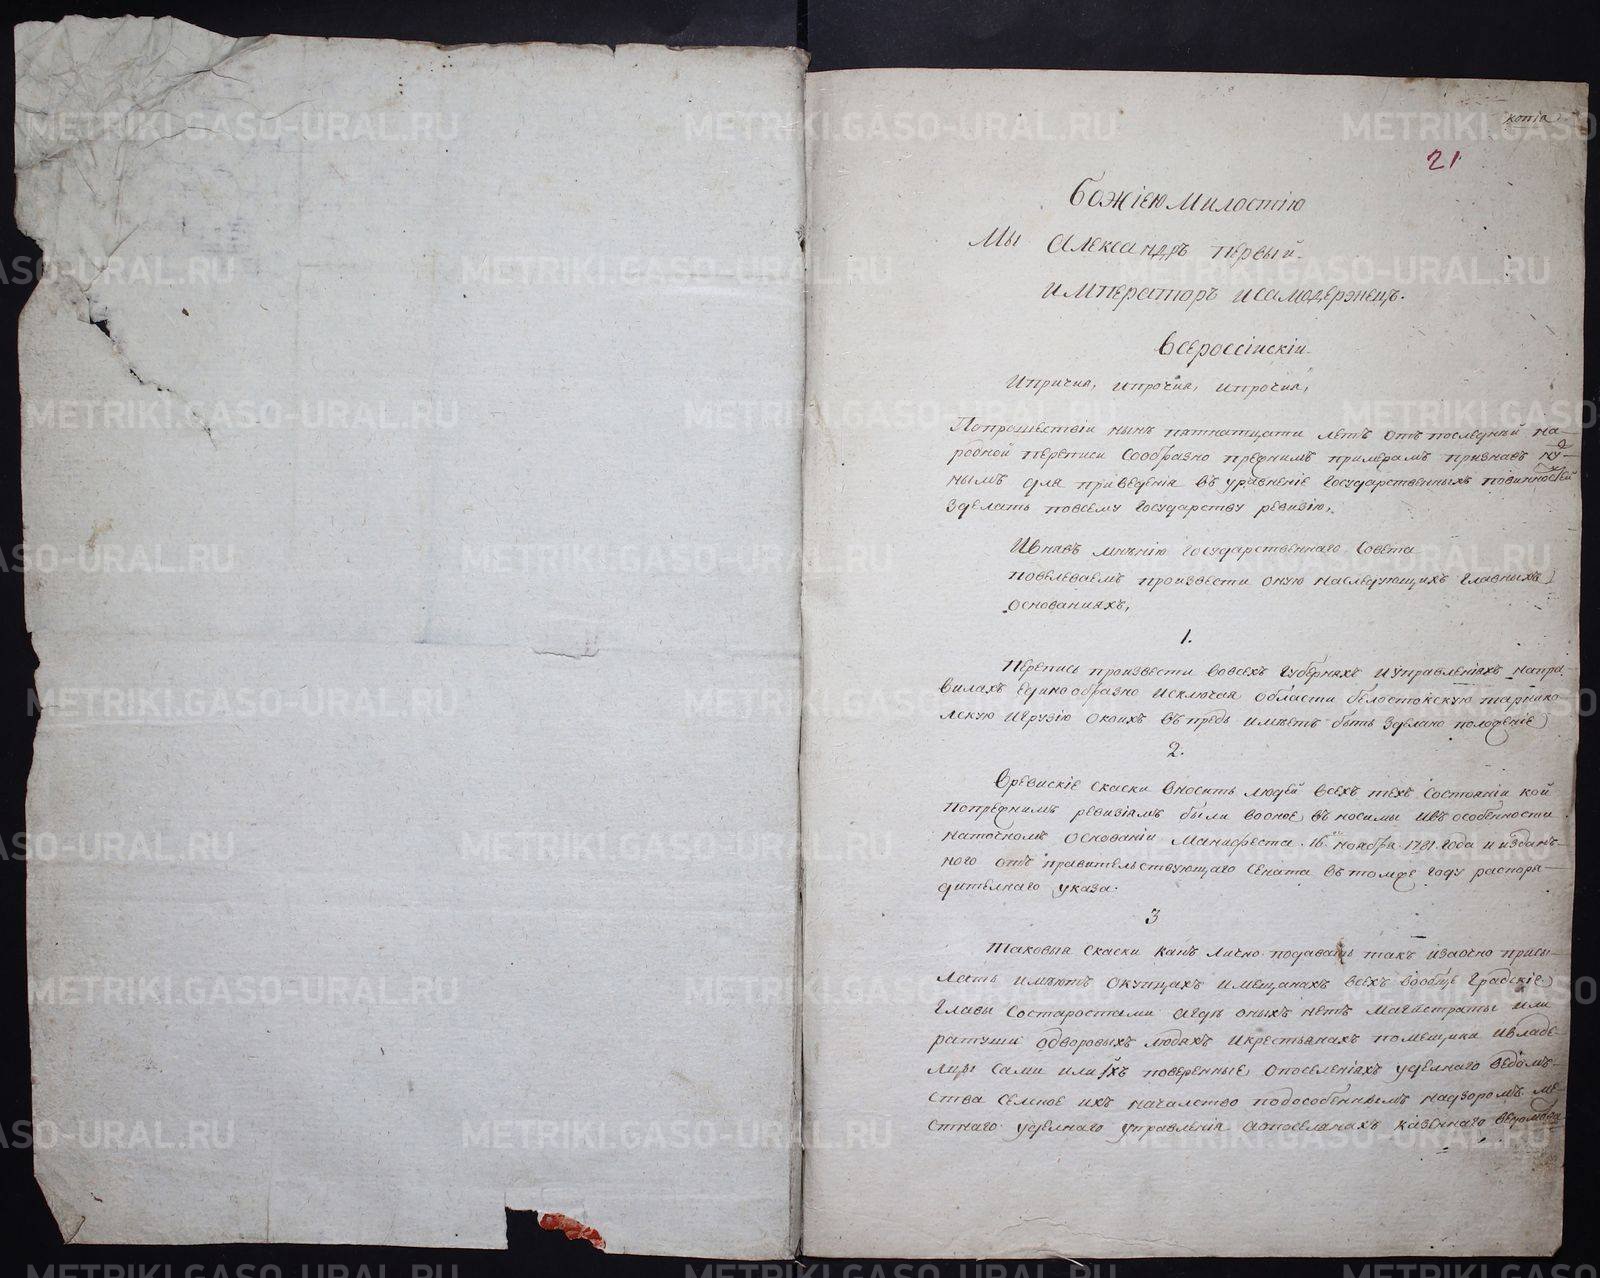 копіа
21
Божіею Милостію
Мы Александръ Первый
Императоръ исамодержецъ.
Всероссійскіи
Ипричиа, ипрочиа, ипрочиа,
Попрошествіи нынѣ пятнатцати летъ отъ последнѣй на-
родной переписи Сообразно прежнимъ примерамъ признавъ ну-
нымъ для приведенія въ уравненіе Государственныхъ повинностей
Зделать повсему Государству ревизію,
Ивнявъ мнѣнію Государственнаго Совета
повелеваемъ произвести оную наследующихъ главныхъ
основанияхъ,
1.
Перепись произвести вовсехъ Губерняхъ иУправленіяхъ напра-
вилахъ единообразно исключая области белостокскую тарнапо-
лскую иГрузію окоихъ въпредь имѣетъ быть зделано положеніе
2.
Вревискіе скаски вносить людей всехъ техъ Состояніи кой
попрежнимъ ревизіямъ были воное въносимы ивъособенности
наточномъ основаніи Манифеста 16 ноября 1781 года и издан-
ного отъ правительствующаго Сената въ томже году распоря-
дителнаго указа.
3
Таковыя скаски какъ лично подавать такъ изаочно присы-
лать имѣютъ окупцахъ имещанахъ всехъ вообще Градскіе
Главы Состаростами агдѣ оныхъ нетъ Магистраты или
ратуши одворовыхъ людяхъ икрестьянахъ помещики ивладе-
лцы сами или ихъ поверенные, опоселеніяхъ уделнаго ведомъ-
ства селное ихъ началство подособеннымъ надзоромъ ме-
стнаго уделнаго управленія аопоселянахъ казеннаго ведомства
METRIKI.GASO-URAL.RU